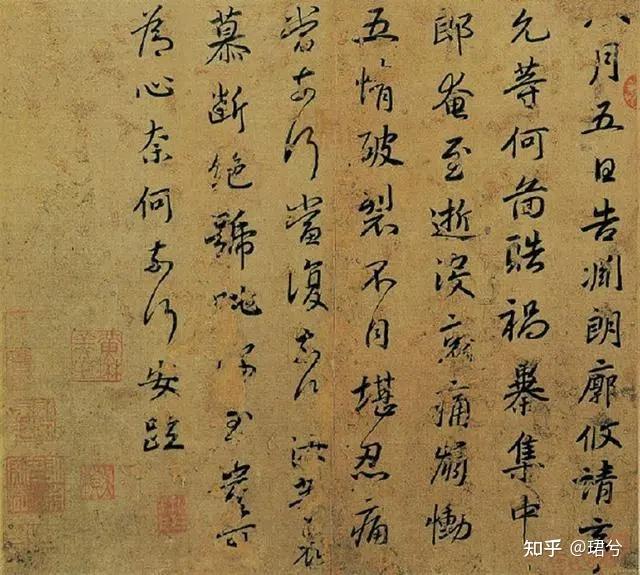 八月五日告淵朗廓攸靖玄
允等何圖酷禍暴集中
郎奄至逝沒哀痛崩慟
五情破裂不自堪忍痛
當奈何當復奈何汝等哀
慕斷絕號咷深至豈可
為心奈何奈何安疏
知乎 @珺兮